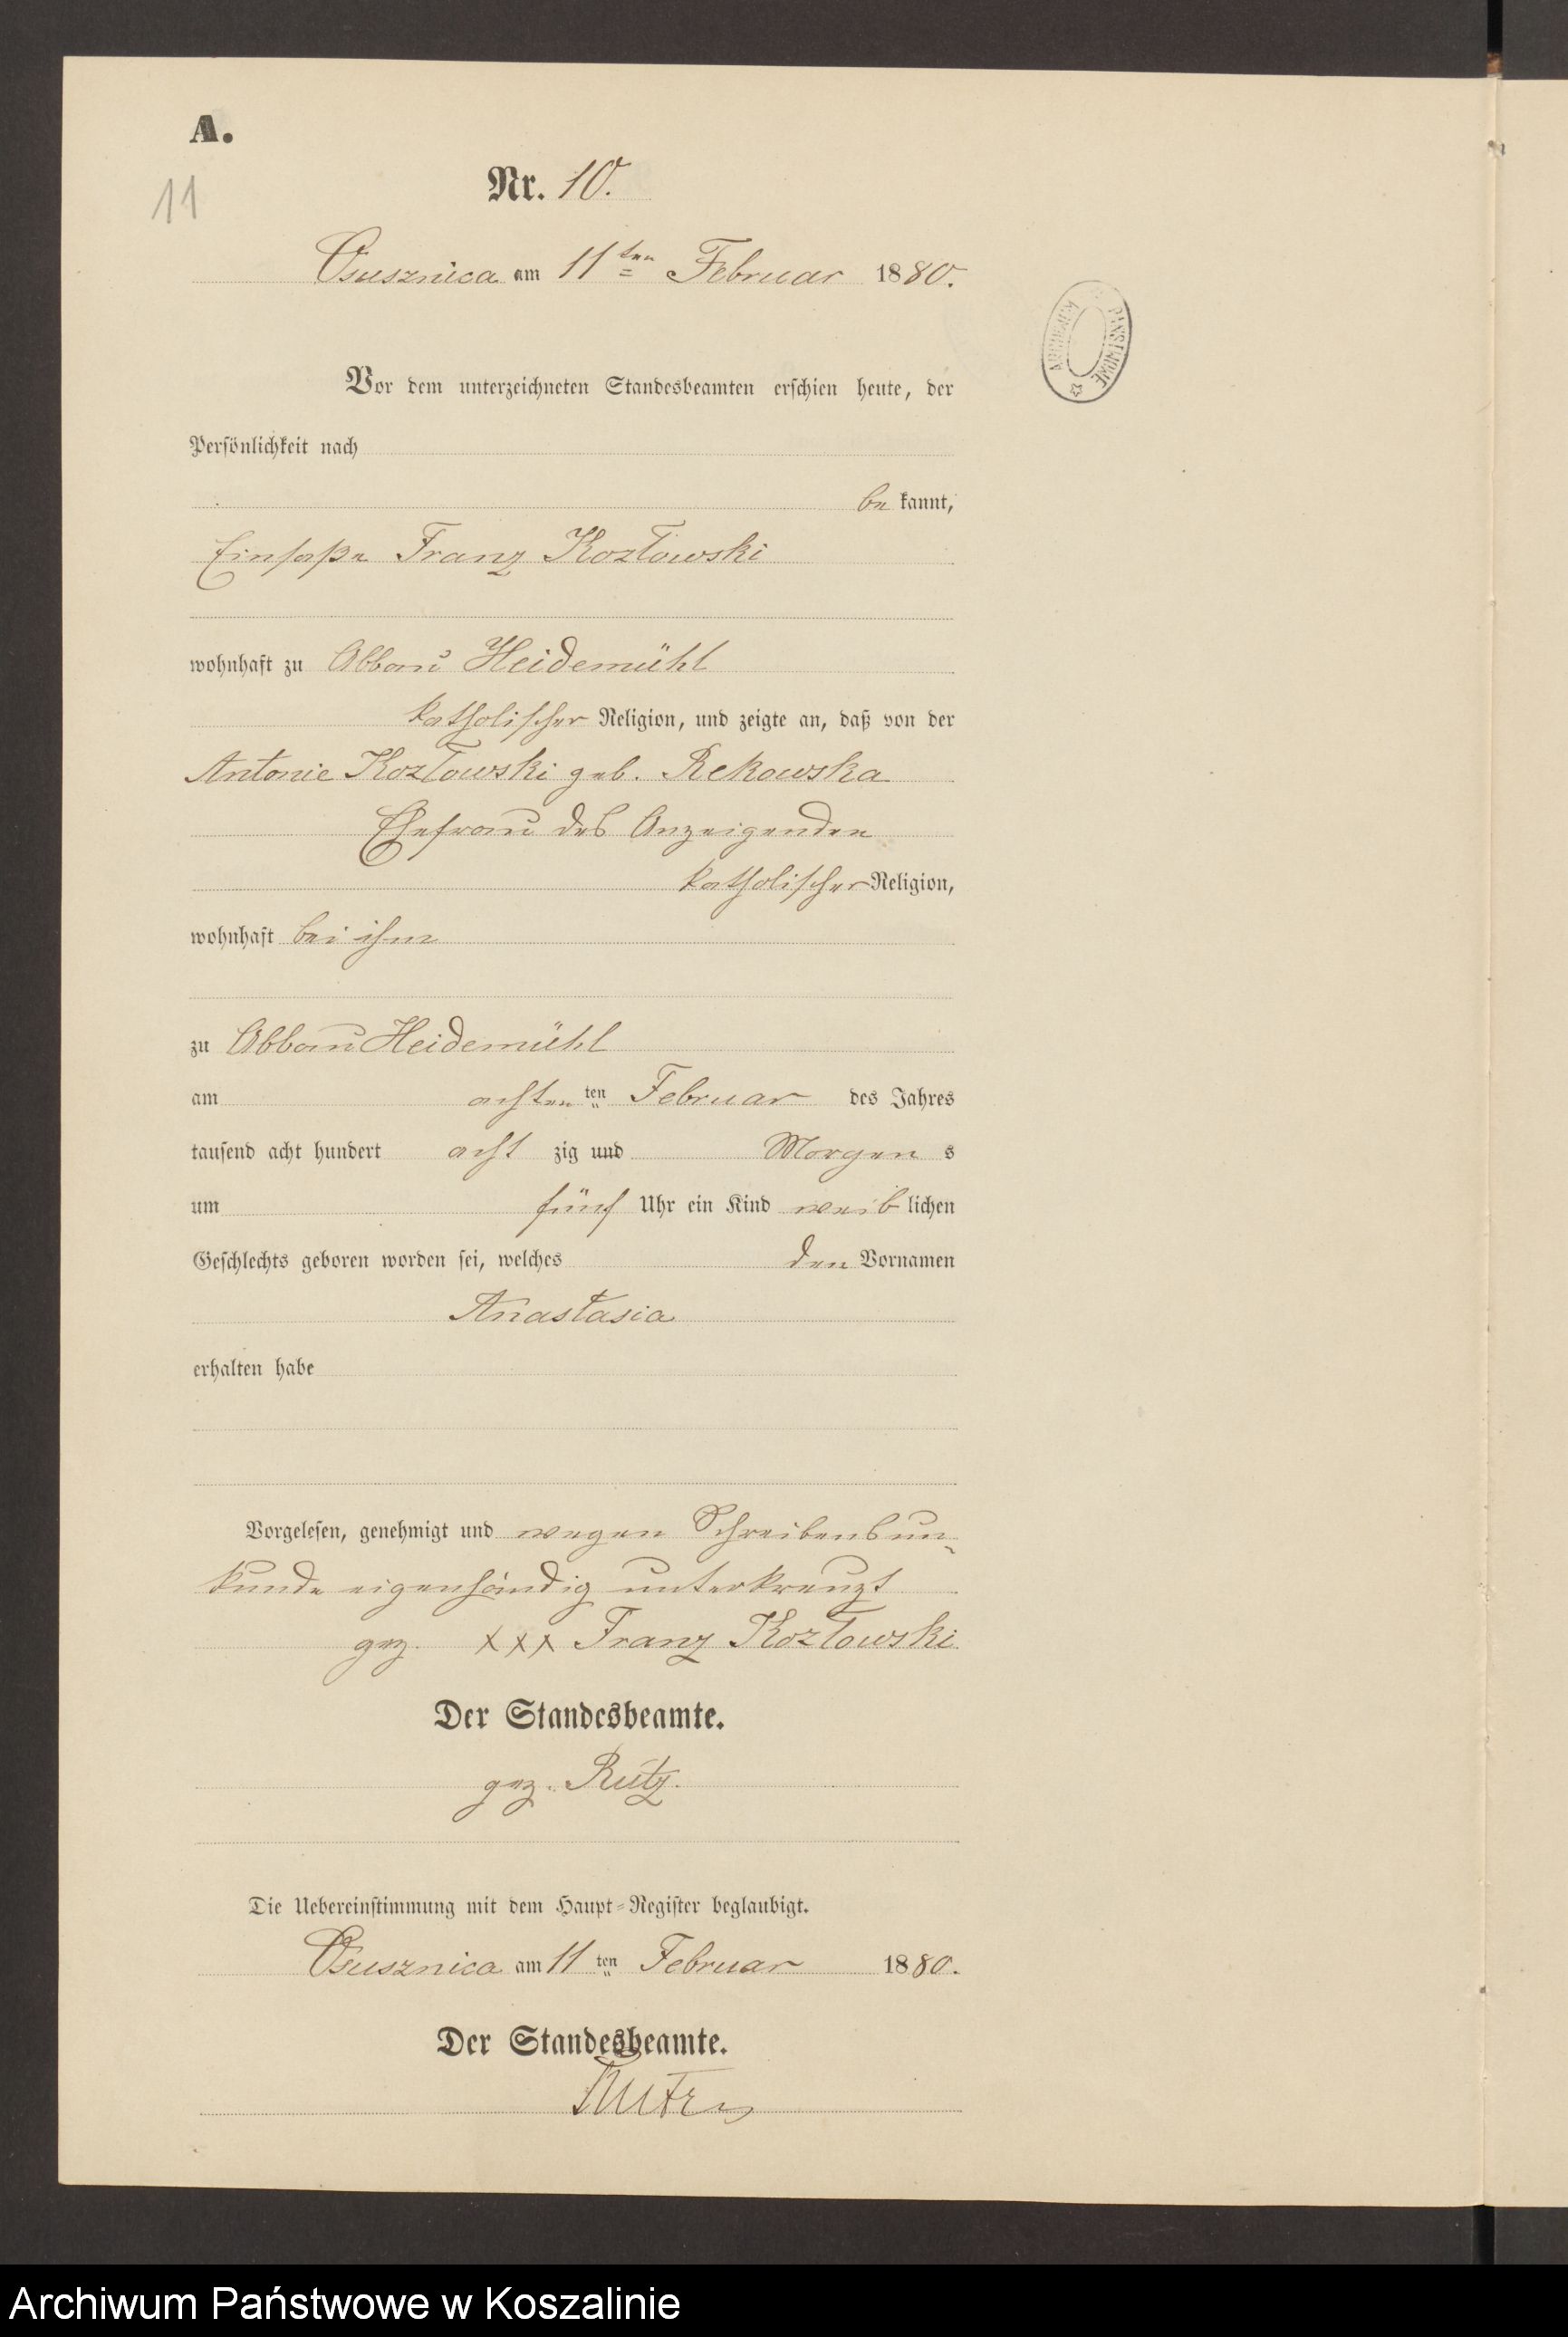 A.
11
Nr. 10.
Osusznica am 11ten Februar 1880.
ARCHIWUM PAŃSTWOWE
Vor dem unterzeichneten Standesbeamten erschien heute, der
Persönlichkeit nach
be kannt,
Einsaße Franz Kozłowski
wohnhaft zu Abbau Heidemühl
katholischer Religion, und zeigte an, daß von der
Antonie Kozłowski geb. Rekowska
Ehefrau des Anzeigenden
katholischer Religion,
wohnhaft bei ihm
zu Abbau Heidemühl
am achten ten Februar des Jahres
tausend acht hundert acht zig und Morgen s
um fünf Uhr ein Kind weib lichen
Geschlechts geboren worden sei, welches den Vornamen
Anastasia
erhalten habe
Vorgelesen, genehmigt und wegen Schreibensun-
kunde eigenhändig unterkreuzt
gez. XXX Franz Kozłowski
Der Standesbeamte.
gez. Rütz.
Die Uebereinstimmung mit dem Haupt-Register beglaubigt.
Osusznica am 11 ten Februar 1880.
Der Standesbeamte.
Archiwum Państwowe w Koszalinie